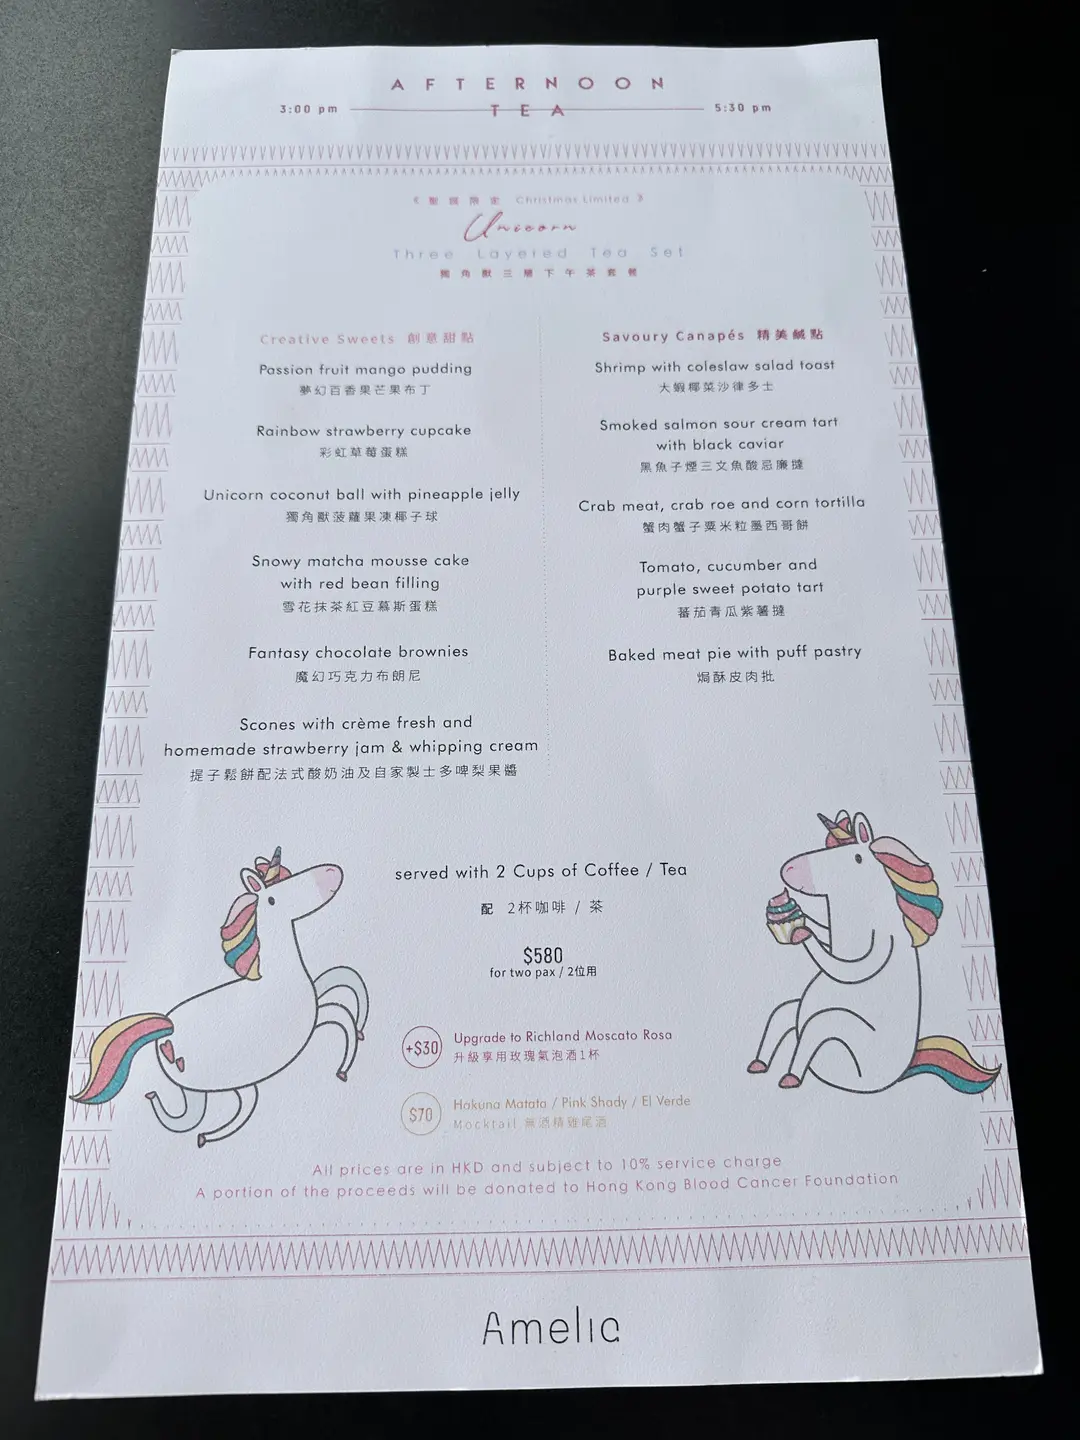 AFTERNOON
3:00 pm TEA 5:30 pm
《聖誕限定 Christmas Limited》
Unicorn
Three Layered Tea Set
獨角獸三層下午茶套餐
Creative Sweets 創意甜點
Passion fruit mango pudding
夢幻百香果芒果布丁
Rainbow strawberry cupcake
彩虹草莓蛋糕
Unicorn coconut ball with pineapple jelly
獨角獸菠蘿果凍椰子球
Snowy matcha mousse cake
with red bean filling
雪花抹茶紅豆慕斯蛋糕
Fantasy chocolate brownies
魔幻巧克力布朗尼
Scones with crème fresh and
homemade strawberry jam & whipping cream
提子鬆餅配法式酸奶油及自家製士多啤梨果醬
Savoury Canapés 精美鹹點
Shrimp with coleslaw salad toast
大蝦椰菜沙律多士
Smoked salmon sour cream tart
with black caviar
黑魚子煙三文魚酸忌廉撻
Crab meat, crab roe and corn tortilla
蟹肉蟹子粟米粒墨西哥餅
Tomato, cucumber and
purple sweet potato tart
蕃茄青瓜紫薯撻
Baked meat pie with puff pastry
焗酥皮肉批
served with 2 Cups of Coffee / Tea
配 2杯咖啡 / 茶
$580
for two pax / 2位用
+$30 Upgrade to Richland Moscato Rosa
升級享用玫瑰氣泡酒1杯
$70 Hakuna Matata / Pink Shady / El Verde
Mocktail 無酒精雞尾酒
All prices are in HKD and subject to 10% service charge
A portion of the proceeds will be donated to Hong Kong Blood Cancer Foundation
Amelia